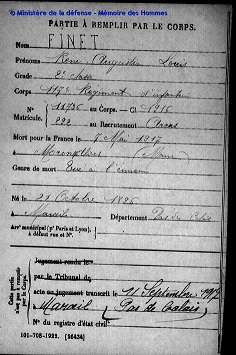 © Ministère de la défense - Mémoire des Hommes
PARTIE À REMPLIR PAR LE CORPS.
Nom FINET
Prénoms René Augustin Louis
Grade 2e classe
Corps 117e Régiment d'infanterie
N° au Corps. — Cl. 1915
Matricule. 892 au Recrutement Arras
Mort pour la France le 7 Mai 1917
(Marne)
Genre de mort Tué à l'ennemi
Né le 21 Octobre 1895
à Marœuil Département Pas de Calais
Arr' municipal (pr Paris et Lyon),
à défaut rue et N°.
Cette partie n'est pas à remplir par le Corps.
Jugement rendu le
par le Tribunal de
acte ou jugement transcrit le 11 Septembre 1917
à Marœuil (Pas de Calais)
N° du registre d'état civil
101-708-1922. [26434]